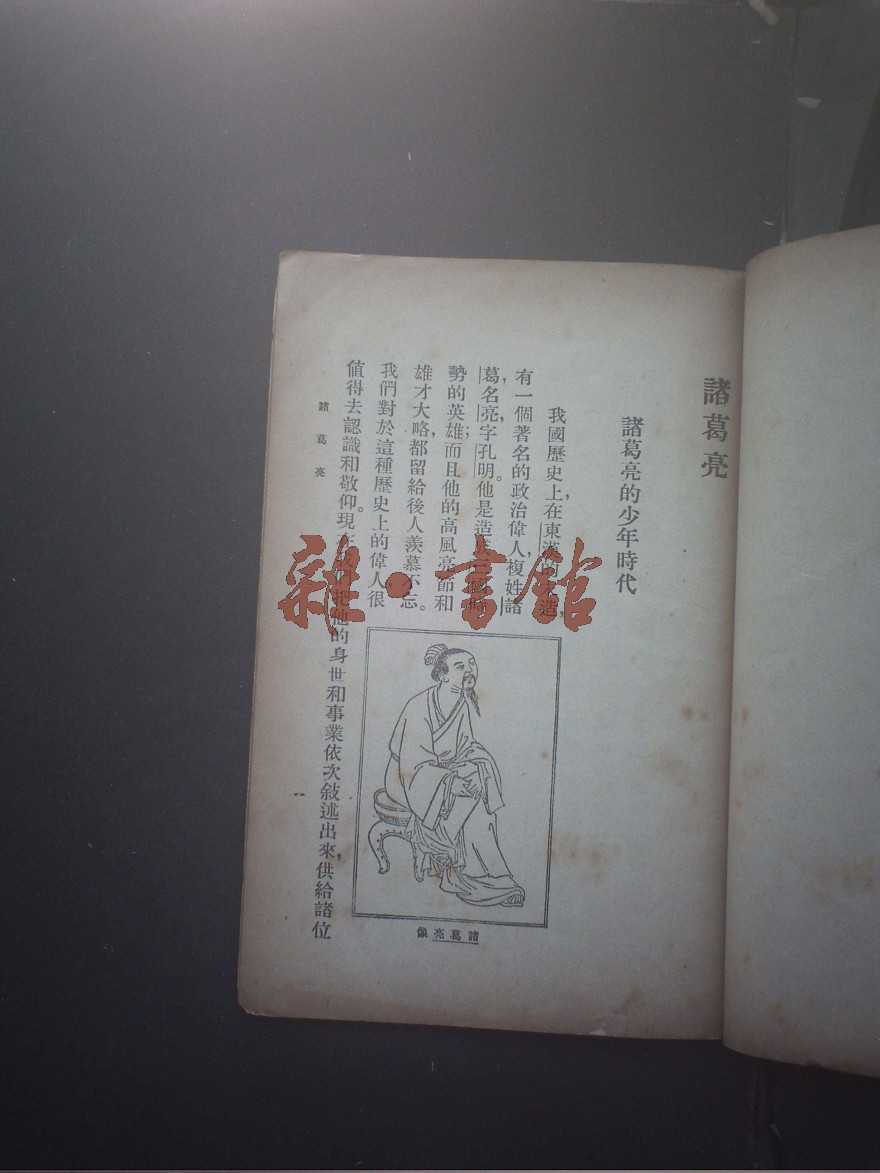 諸葛亮
諸葛亮的少年時代
我國歷史上，在東漢末造，
有一個著名的政治偉人，複姓諸
葛，名亮，字孔明。他是造成三國時
勢的英雄；而且他的高風亮節和
雄才大略，都留給後人羨慕不忘。
我們對於這種歷史上的偉人，很
值得去認識和敬仰。現在我們把他的身世和事業依次敍述出來，供給諸位
諸葛亮像
諸葛亮
雜·書館